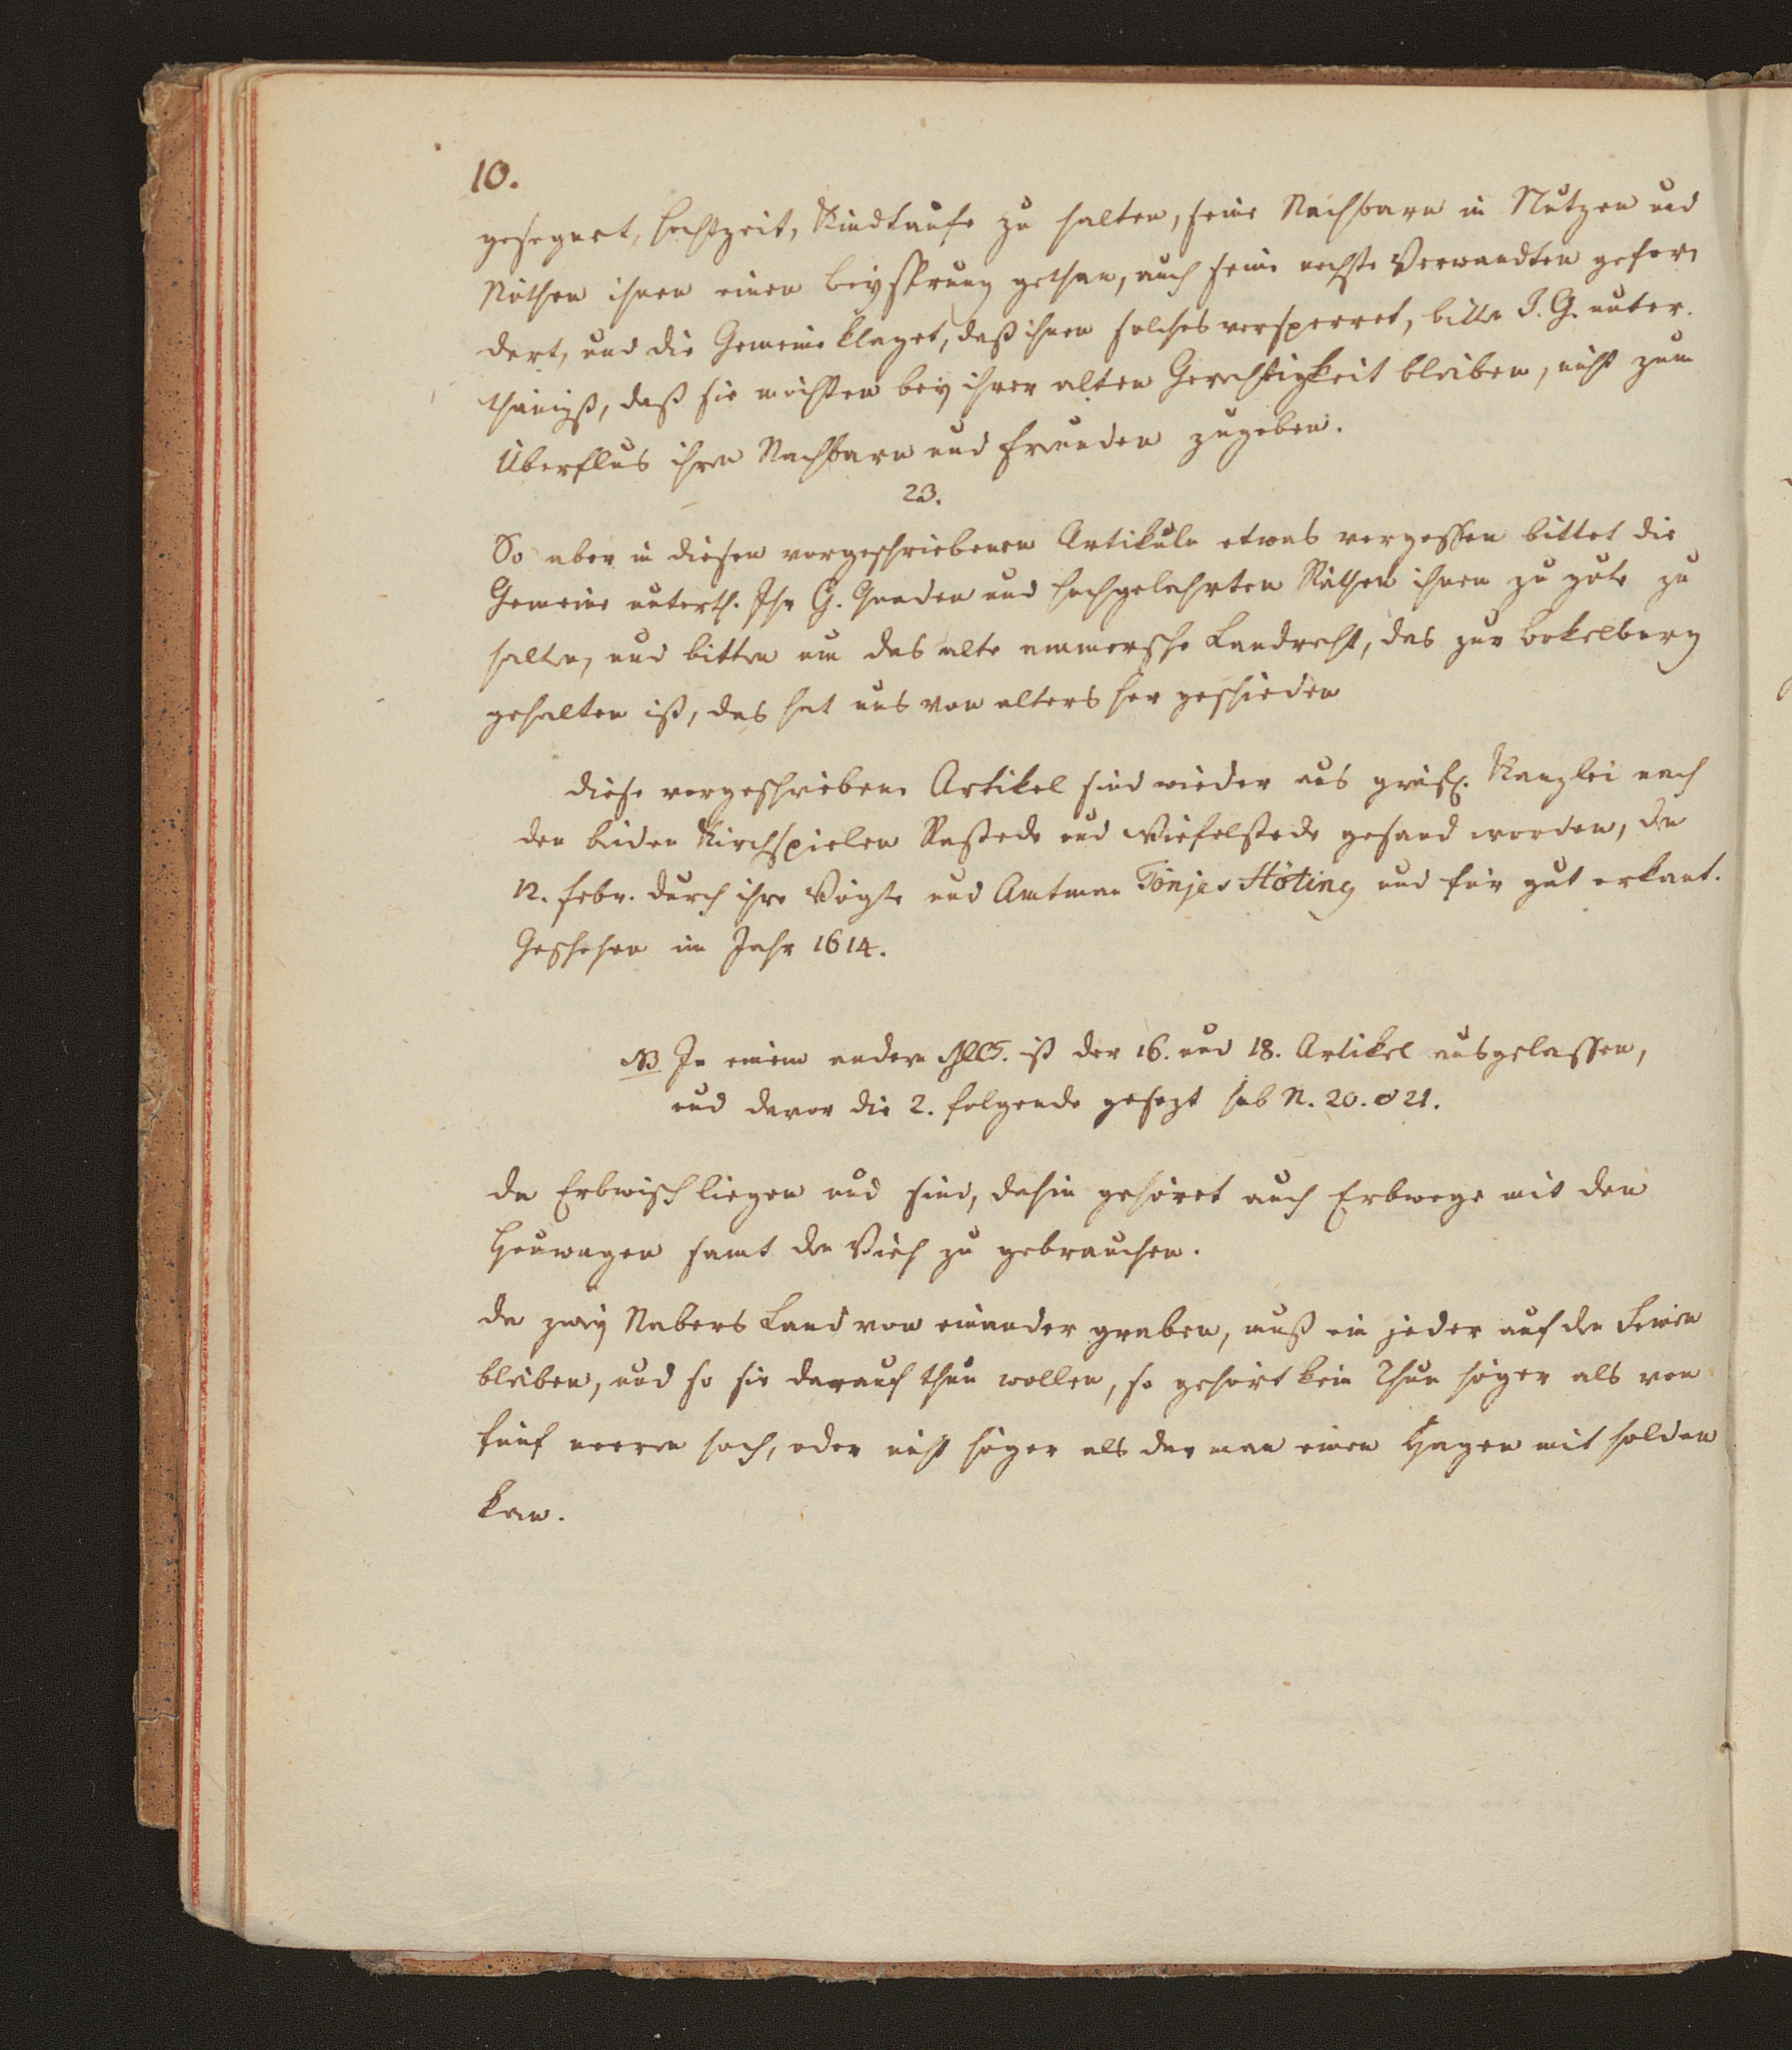 10.
gesegnet, Hochzeit, Kindtaufe zu halten, seine Nachbarn in Nutzen und
Nöthen ihnen einen beysprung gethan, auch seine nechste Verwandten gefor
dert, und die Gemeine klaget, daß ihnen solches versperret, bitten I. G. unter-
thänigst, daß sie möchten bey ihrer alten Gerechtigkeit bleiben, nicht zum
Überflus ihren Nachbarn und Freunden zugeben.
23.
So aber in diesen vorgeschriebenen Artikuln etwas vergessen bittet die
Gemeine unterth. Ihr G. Gnaden und hochgelehrten Räthen ihnen zu gute zu
halten, und bitten um das alte ammersche Landrecht, das zur bokelberg
gehalten ist, das hat uns von alters her geschieden
diese vorgeschriebene Artikel sind wieder aus gräfl. Kanzlei nach
den beiden Kirchspielen Rastede und Wiefelstede gesand worden, den
12. febr. durch ihre Vögte und Amtman Tönjes Höting und für gut erkant.
Geschehen im Jahr 1614.
NB In einem andern Msc. ist der 16. und 18. Artikel ausgelassen,
und davor die 2. folgende gesezt sub N. 20. & 21.
da Erbwisch liegen und sind, dahin gehöret auch Erbwege mit den
Heuwagen samt den Vieh zu gebrauchen.
da zwey Nabers Land von einander graben, muß ein jeder auf den seinen
bleiben, und so sie darauf thun wollen, so gehört kein Thun höger als von
fünf neeren hoch, oder nicht höger als dar man einen Hagen mit holden
kan.